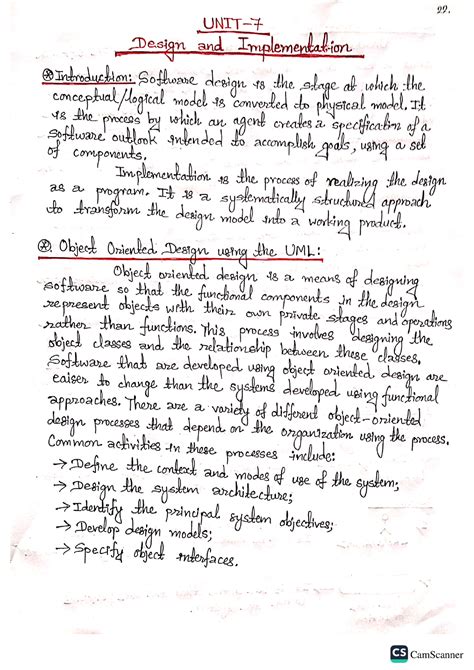 22.
UNIT-7
Design and Implementation
Introduction: Software design is the stage at which the
conceptual/logical model is converted to physical model. It
is the process by which an agent creates a specification of a
software outlook intended to accomplish goals, using a set
of components.
Implementation is the process of realizing the design
as a program. It is a systematically structured approach
to transform the design model into a working product.
Object Oriented Design using the UML:
Object oriented design is a means of designing
software so that the functional components in the design
represent objects with their own private stages and operations
rather than functions. This process involves designing the
object classes and the relationship between these classes.
Software that are developed using object oriented design are
eaiser to change than the systems developed using functional
approaches. There are a variety of different object-oriented
design processes that depend on the organization using the process.
Common activities in these processes include:
→ Define the context and modes of use of the system;
→ Design the system architecture;
→ Identify the principal system objectives;
→ Develop design models;
→ Specify object interfaces.
CS CamScanner